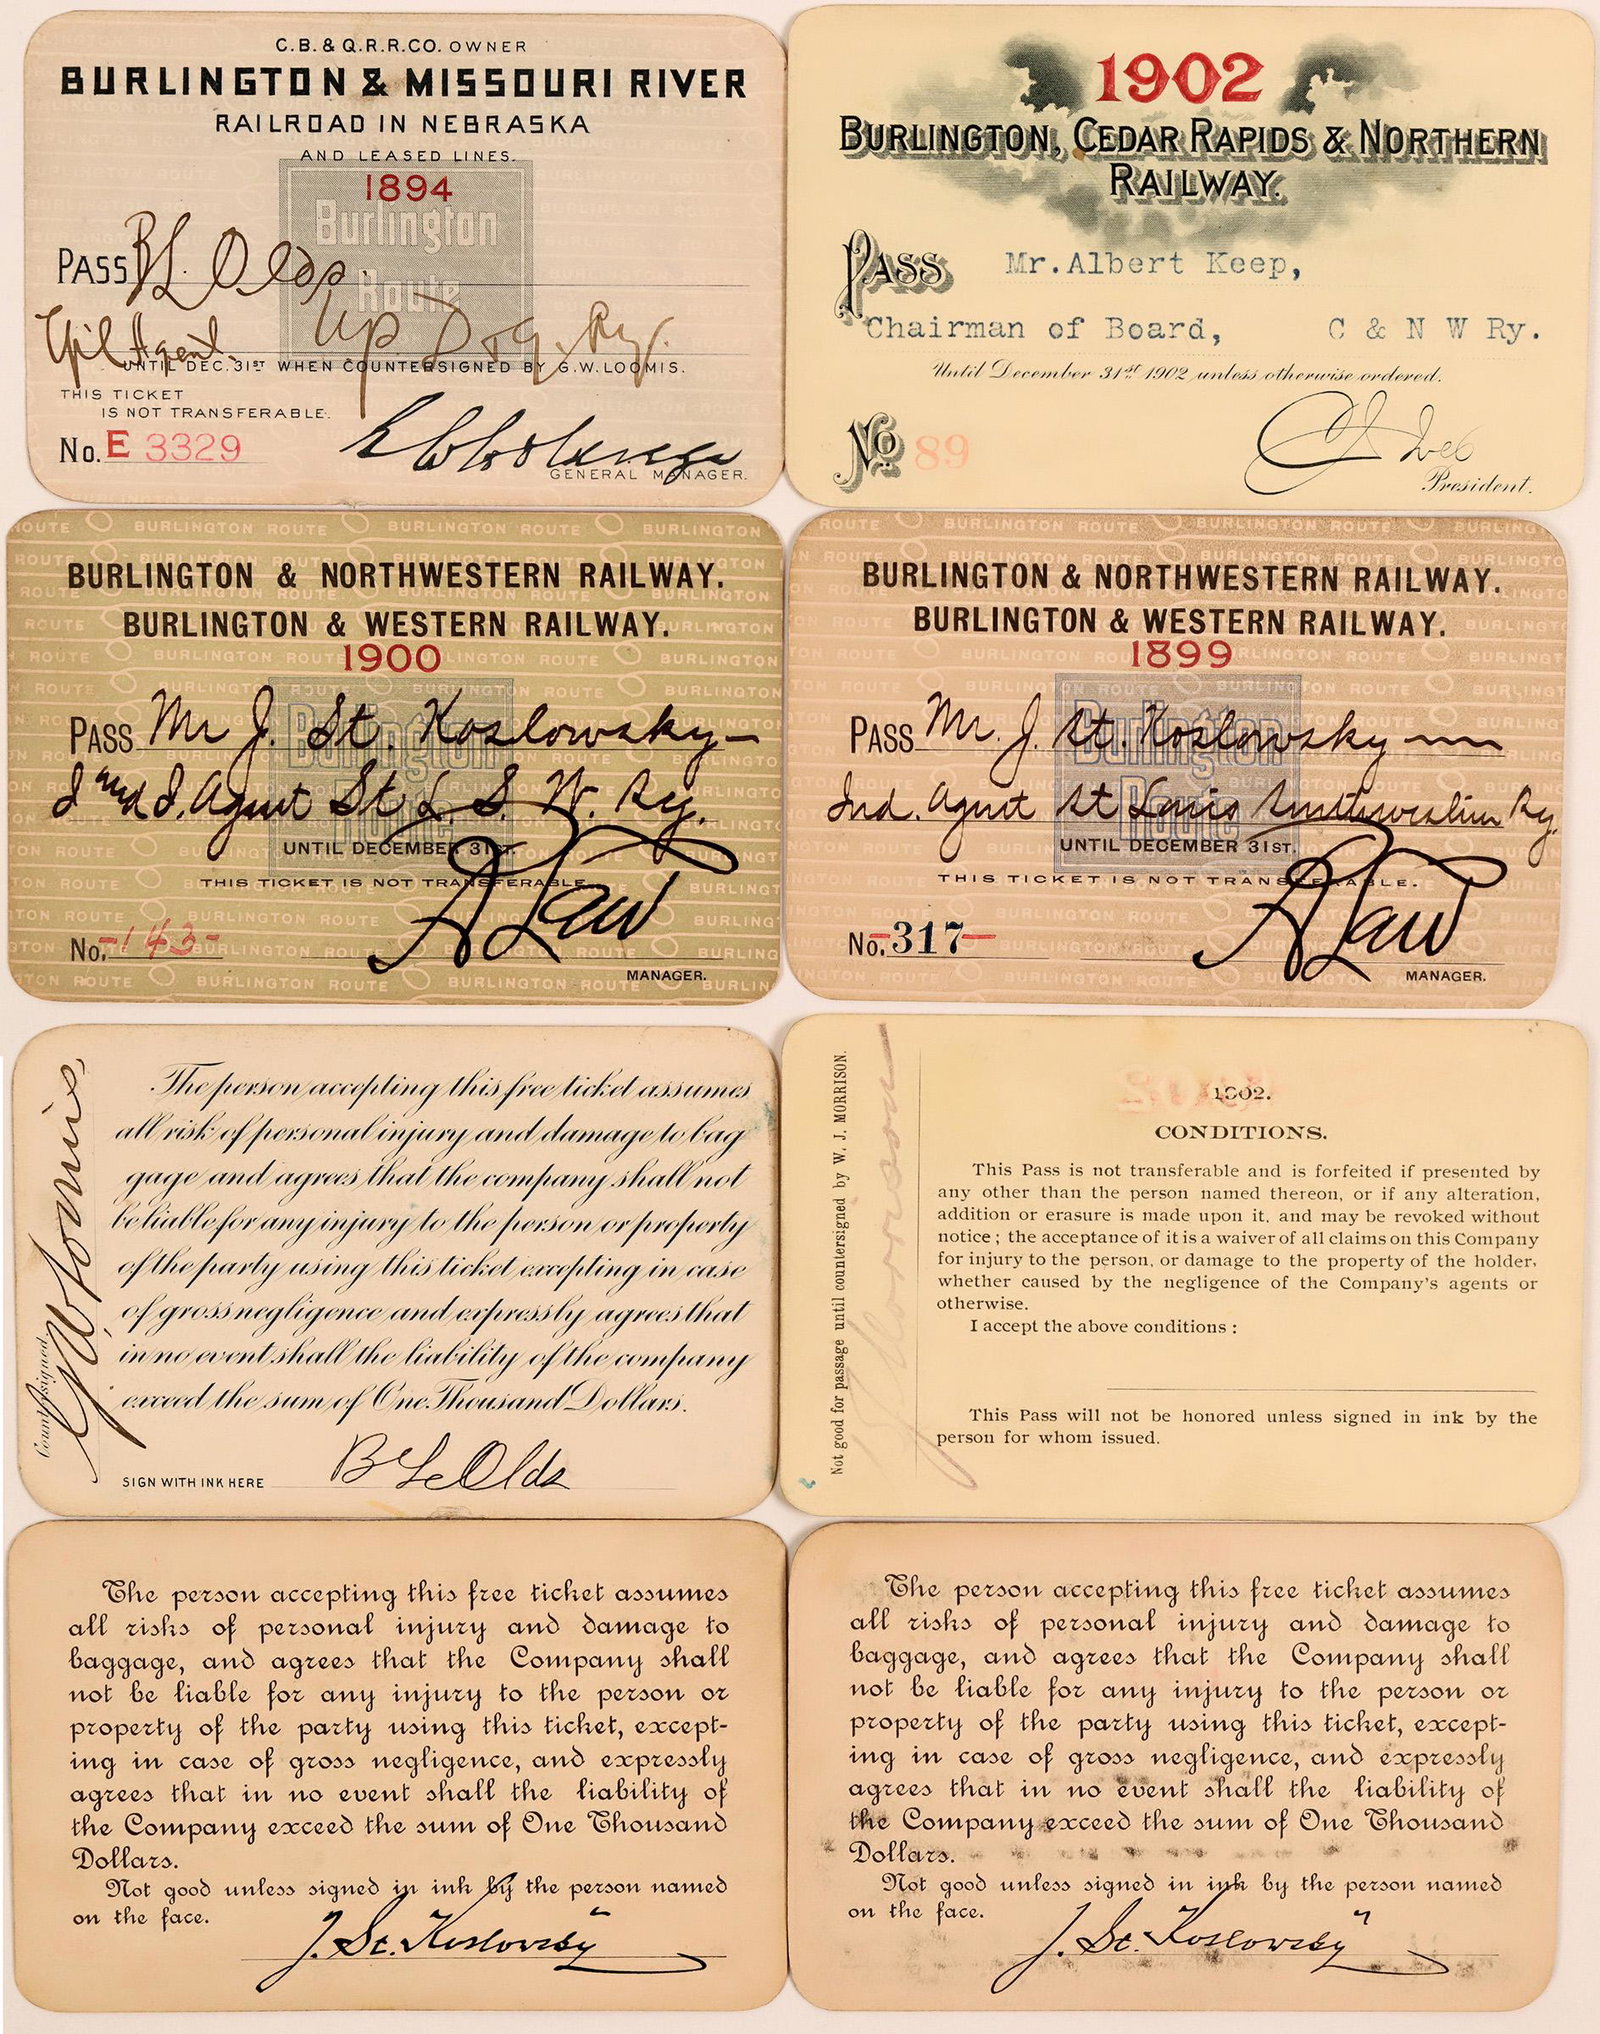 C.B. & Q.R.R.CO. OWNER
BURLINGTON & MISSOURI RIVER
RAILROAD IN NEBRASKA
AND LEASED LINES.
1894
Burlington
Route
PASS B L. Olds.
Gen'l Agent. U.P. D & G. Ry.
UNTIL DEC. 31ST WHEN COUNTERSIGNED BY G.W. LOOMIS.
THIS TICKET
IS NOT TRANSFERABLE.
No. E 3329
GENERAL MANAGER.
1902
BURLINGTON, CEDAR RAPIDS & NORTHERN
RAILWAY.
PASS Mr. Albert Keep,
Chairman of Board, C & N W Ry.
Until December 31st 1902 unless otherwise ordered.
No 89
President.
BURLINGTON & NORTHWESTERN RAILWAY.
BURLINGTON & WESTERN RAILWAY.
1900
Burlington
Route
PASS Mr J. St. Koslowsky —
Agent St L. S. W. Ry.
UNTIL DECEMBER 31ST.
THIS TICKET IS NOT TRANSFERABLE.
No. -143-
MANAGER.
BURLINGTON & NORTHWESTERN RAILWAY.
BURLINGTON & WESTERN RAILWAY.
1899
Burlington
Route
PASS Mr. J. St. Koslowsky
Ind. Agent St Louis Southwestern Ry.
UNTIL DECEMBER 31ST.
THIS TICKET IS NOT TRANSFERABLE.
No. 317
MANAGER.
Countersigned
G W Loomis
The person accepting this free ticket assumes
all risk of personal injury and damage to bag
gage and agrees that the company shall not
be liable for any injury to the person or property
of the party using this ticket excepting in case
of gross negligence and expressly agrees that
in no event shall the liability of the company
exceed the sum of One Thousand Dollars.
SIGN WITH INK HERE B L Olds
Not good for passage until countersigned by W. J. MORRISON.
1902.
CONDITIONS.
This Pass is not transferable and is forfeited if presented by
any other than the person named thereon, or if any alteration,
addition or erasure is made upon it, and may be revoked without
notice; the acceptance of it is a waiver of all claims on this Company
for injury to the person, or damage to the property of the holder,
whether caused by the negligence of the Company's agents or
otherwise.
I accept the above conditions:
This Pass will not be honored unless signed in ink by the
person for whom issued.
The person accepting this free ticket assumes
all risks of personal injury and damage to
baggage, and agrees that the Company shall
not be liable for any injury to the person or
property of the party using this ticket, except-
ing in case of gross negligence, and expressly
agrees that in no event shall the liability of
the Company exceed the sum of One Thousand
Dollars.
Not good unless signed in ink by the person named
on the face.
J. St. Koslowsky
The person accepting this free ticket assumes
all risks of personal injury and damage to
baggage, and agrees that the Company shall
not be liable for any injury to the person or
property of the party using this ticket, except-
ing in case of gross negligence, and expressly
agrees that in no event shall the liability of
the Company exceed the sum of One Thousand
Dollars.
Not good unless signed in ink by the person named
on the face.
J. St. Koslowsky